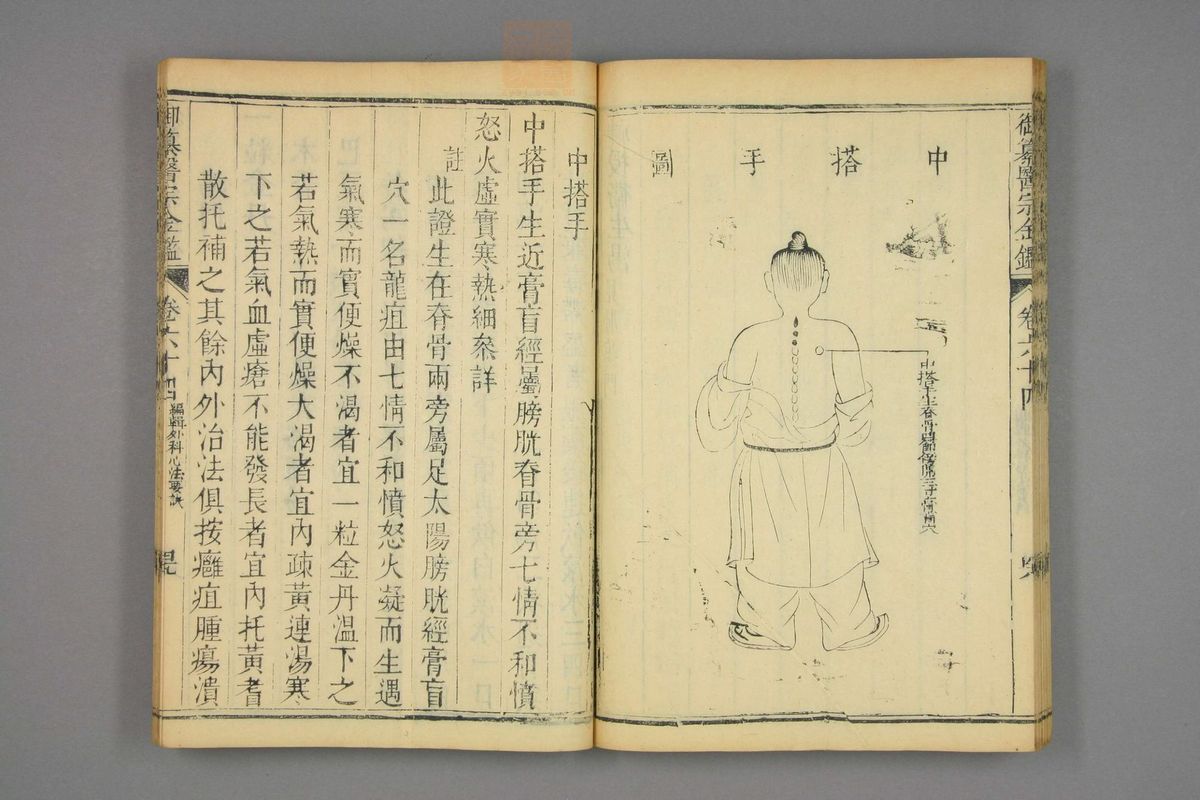 御纂醫宗金鑑 卷六十四
中搭手圖
中搭手生脊骨
中搭手
中搭手生近膏肓經屬膀胱脊骨旁七情不和憤
怒火虛實寒熱細叅詳
註此證生在脊骨兩旁屬足太陽膀胱經膏肓
穴一名龍疽由七情不和憤怒火凝而生遇
氣寒而實便燥不渴者宜一粒金丹溫下之
若氣熱而實便燥大渴者宜內疎黃連湯寒
下之若氣血虛瘡不能發長者宜內托黃耆
散托補之其餘內外治法俱按癰疽腫瘍潰
御纂醫宗金鑑 卷六十四 編輯外科心法要訣